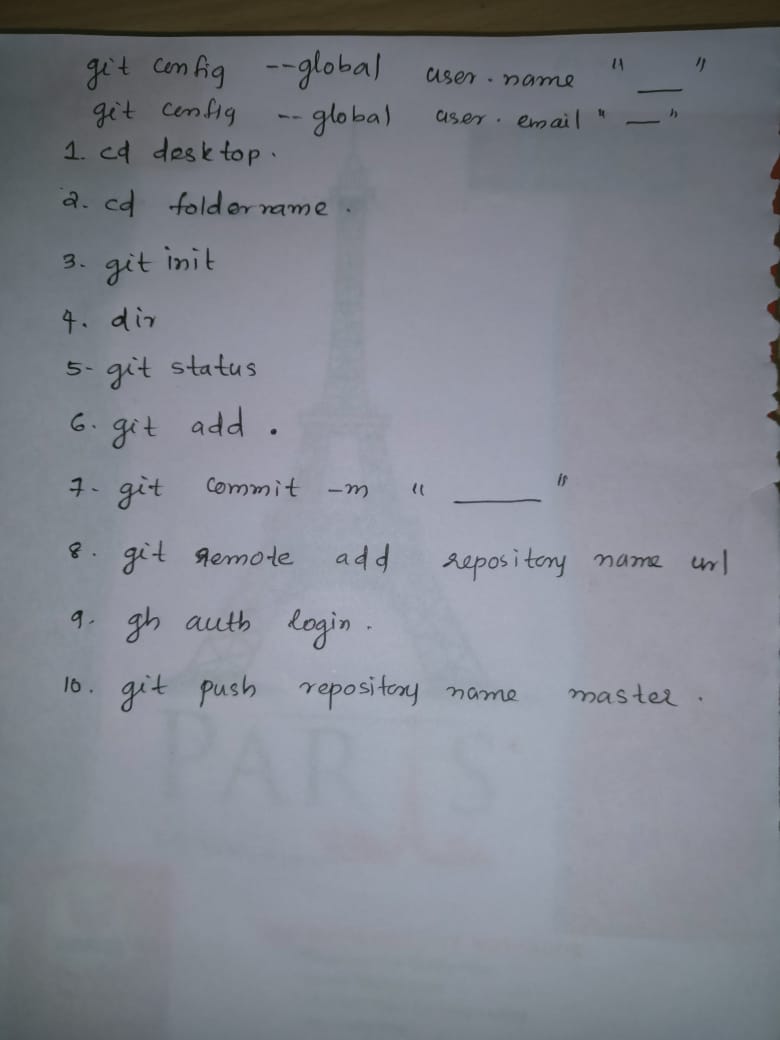 git config --global user.name "__"
git config --global user.email "__"
1. cd desktop.
2. cd foldername.
3. git init
4. dir
5- git status
6. git add .
7- git commit -m "____"
8. git remote add repository name url
9. gh auth login.
10. git push repository name master.
PARIS